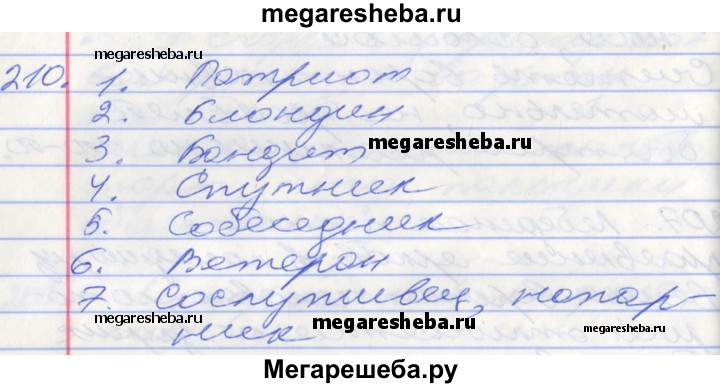 megaresheba.ru
megaresheba.ru
210. 1. Патриот
2. Блондин
3. Бандит
megaresheba.ru
4. Спутник
5. Собеседник
6. Ветеран
7. Сослуживец, напар-
ник
megaresheba.ru
megaresheba.ru
Мегарешеба.ру